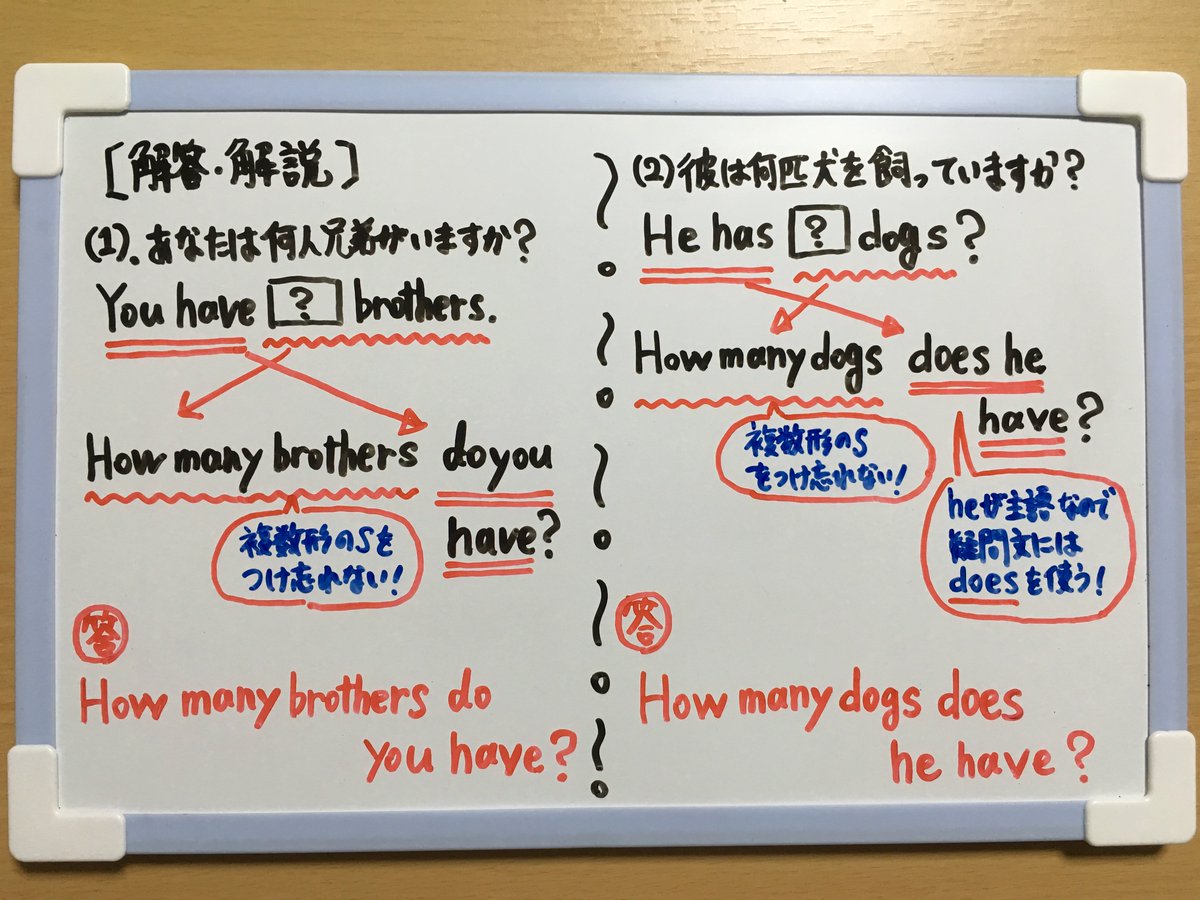 [解答・解説]
(1).あなたは何人兄弟がいますか?
You have ? brothers.
How many brothers do you
have?
複数形のSを
つけ忘れない!
答
How many brothers do
you have?
(2)彼は何匹犬を飼っていますか?
He has ? dogs?
How many dogs does he
have?
複数形のS
をつけ忘れない!
heが主語なので
疑問文には
doesを使う!
答
How many dogs does
he have?